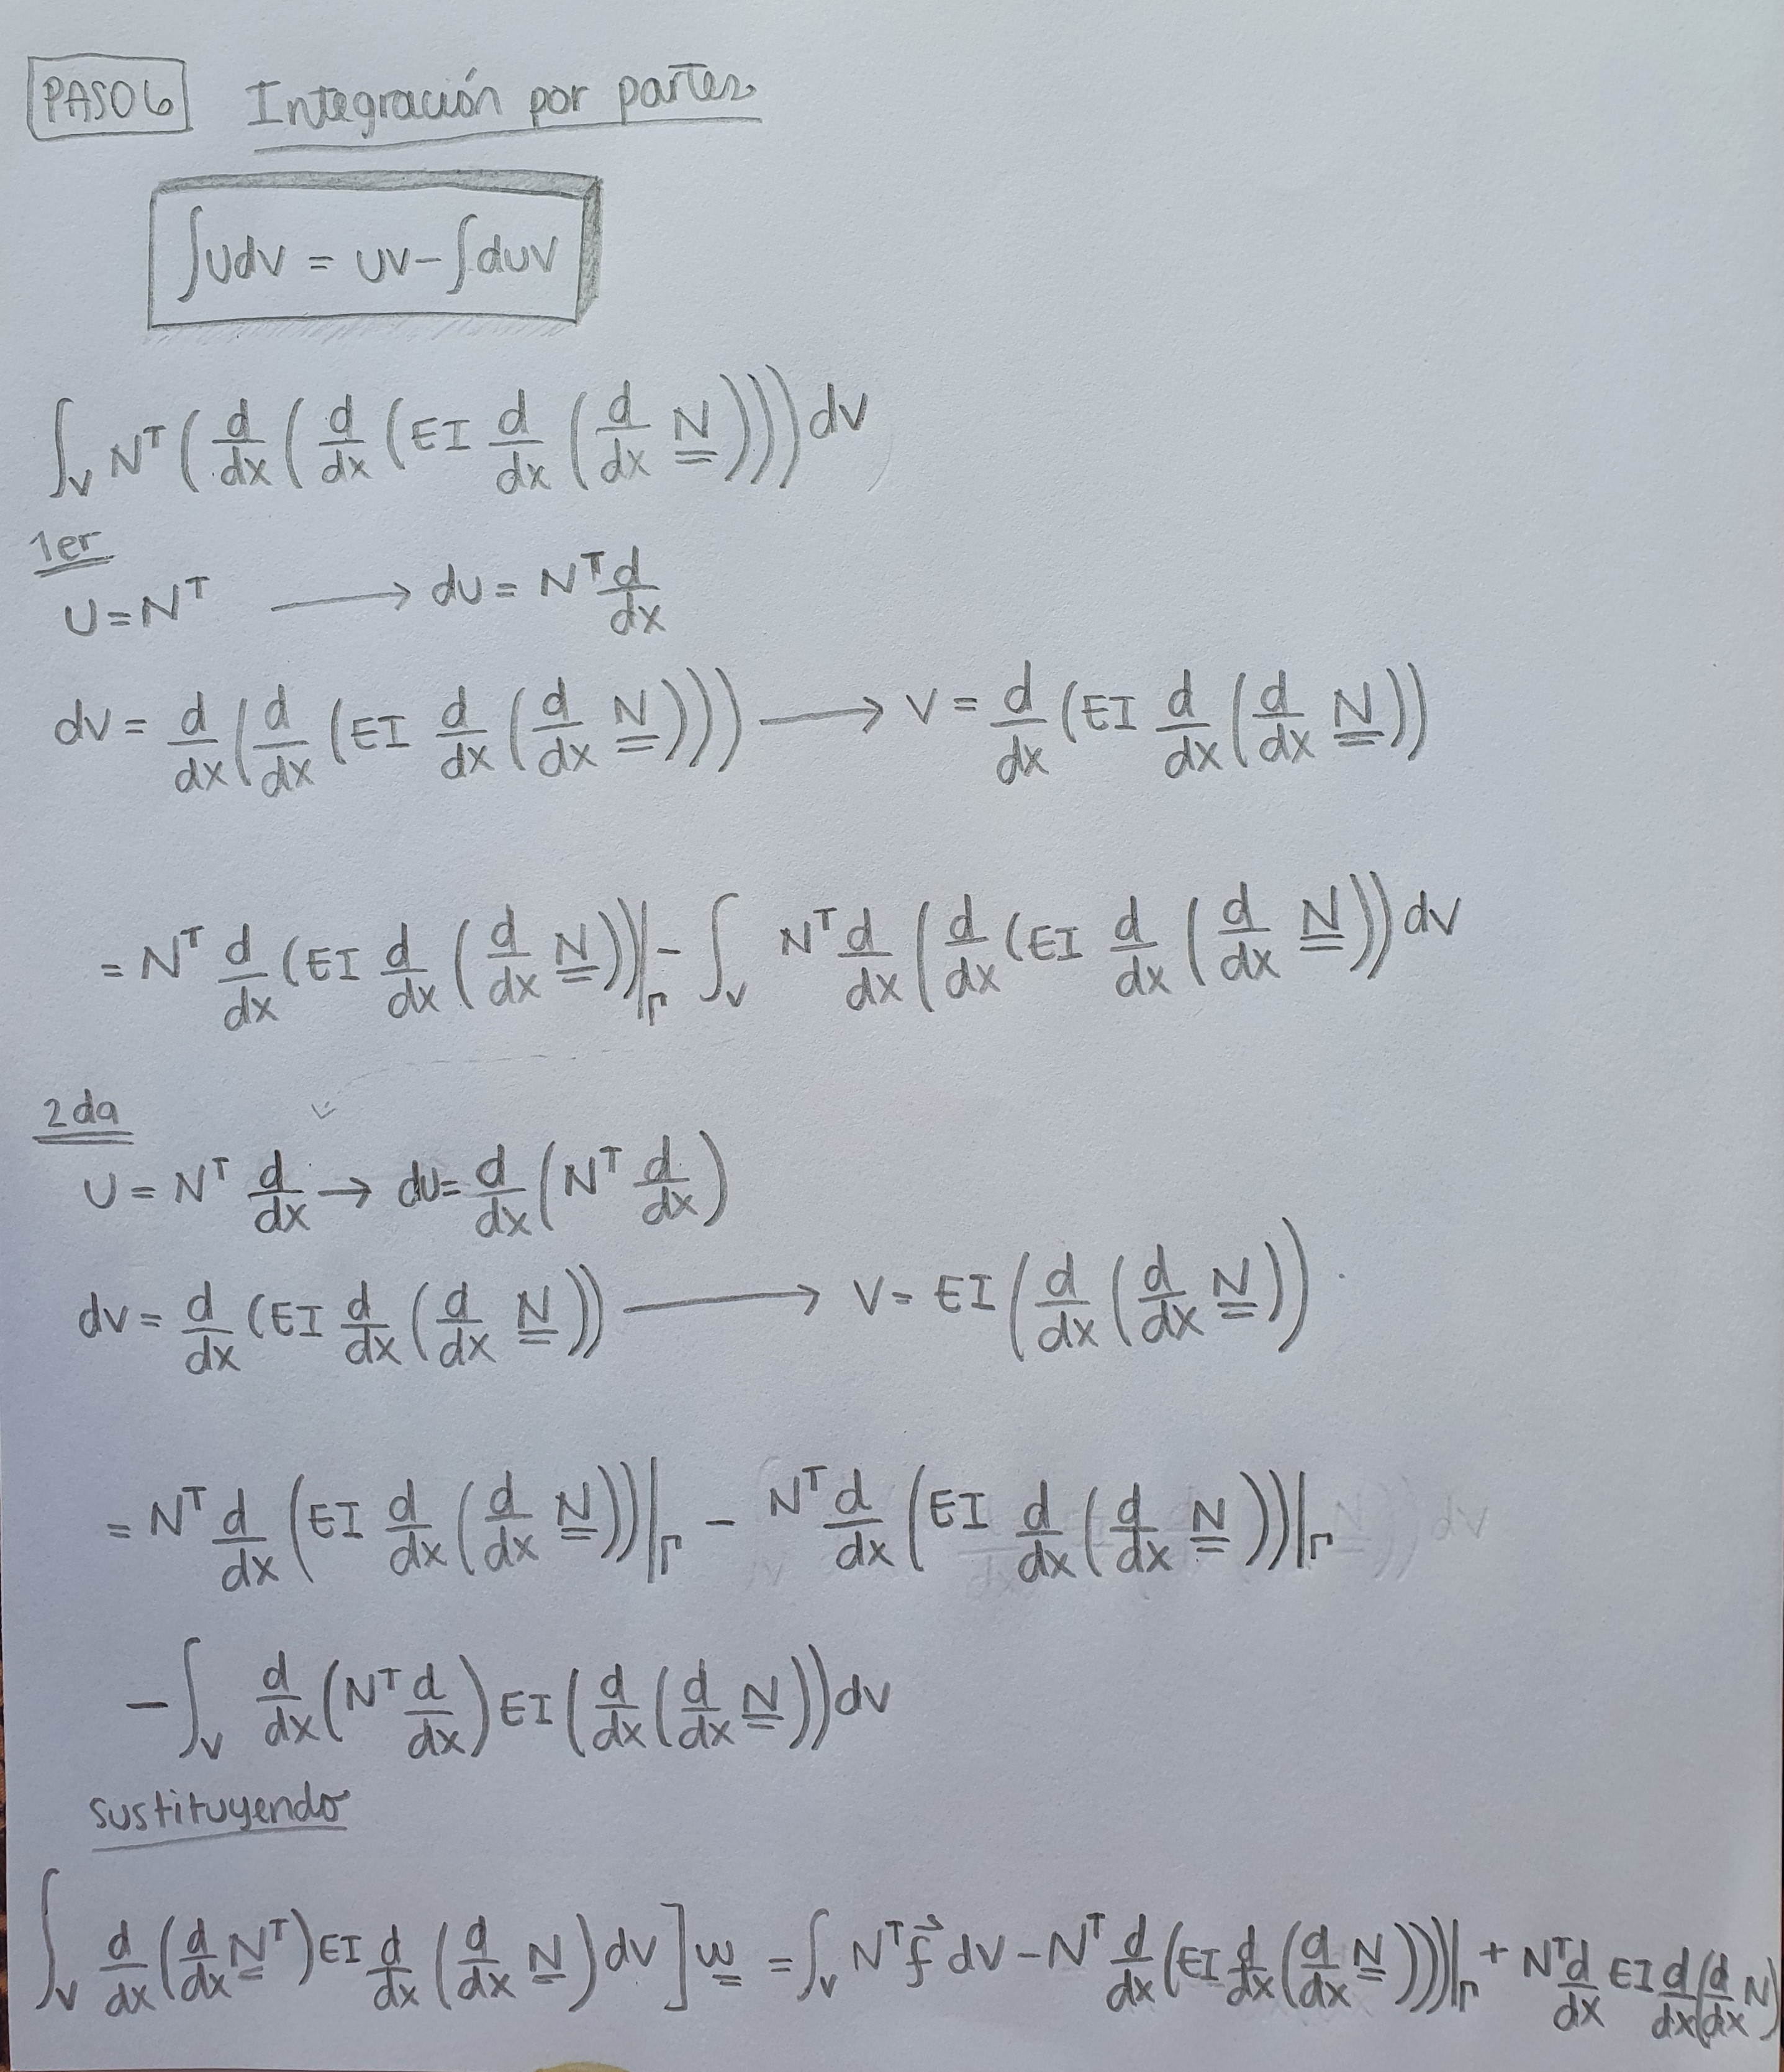 PASO6 Integración por partes
∫udv = uv-∫duv
∫_V N^T (d/dx (d/dx (EI d/dx (d/dx N)))) dv
1er
U=N^T ⟶ du= N^T d/dx
dv= d/dx (d/dx (EI d/dx (d/dx N))) ⟶ V= d/dx (EI d/dx (d/dx N))
= N^T d/dx (EI d/dx (d/dx N))|_Γ - ∫_V N^T d/dx (d/dx (EI d/dx (d/dx N)) dv
2da
U = N^T d/dx → du= d/dx (N^T d/dx)
dv= d/dx (EI d/dx (d/dx N)) ⟶ V= EI (d/dx (d/dx N))
= N^T d/dx (EI d/dx (d/dx N))|_Γ - N^T d/dx (EI d/dx (d/dx N))|_Γ
-∫_V d/dx (N^T d/dx) EI (d/dx (d/dx N)) dv
sustituyendo
∫_V d/dx (d/dx N^T) EI d/dx (d/dx N) dv] w = ∫_V N^T f⃗ dv - N^T d/dx (EI d/dx (d/dx N)))|_Γ + N^T d/dx EI d/dx (d/dx N)